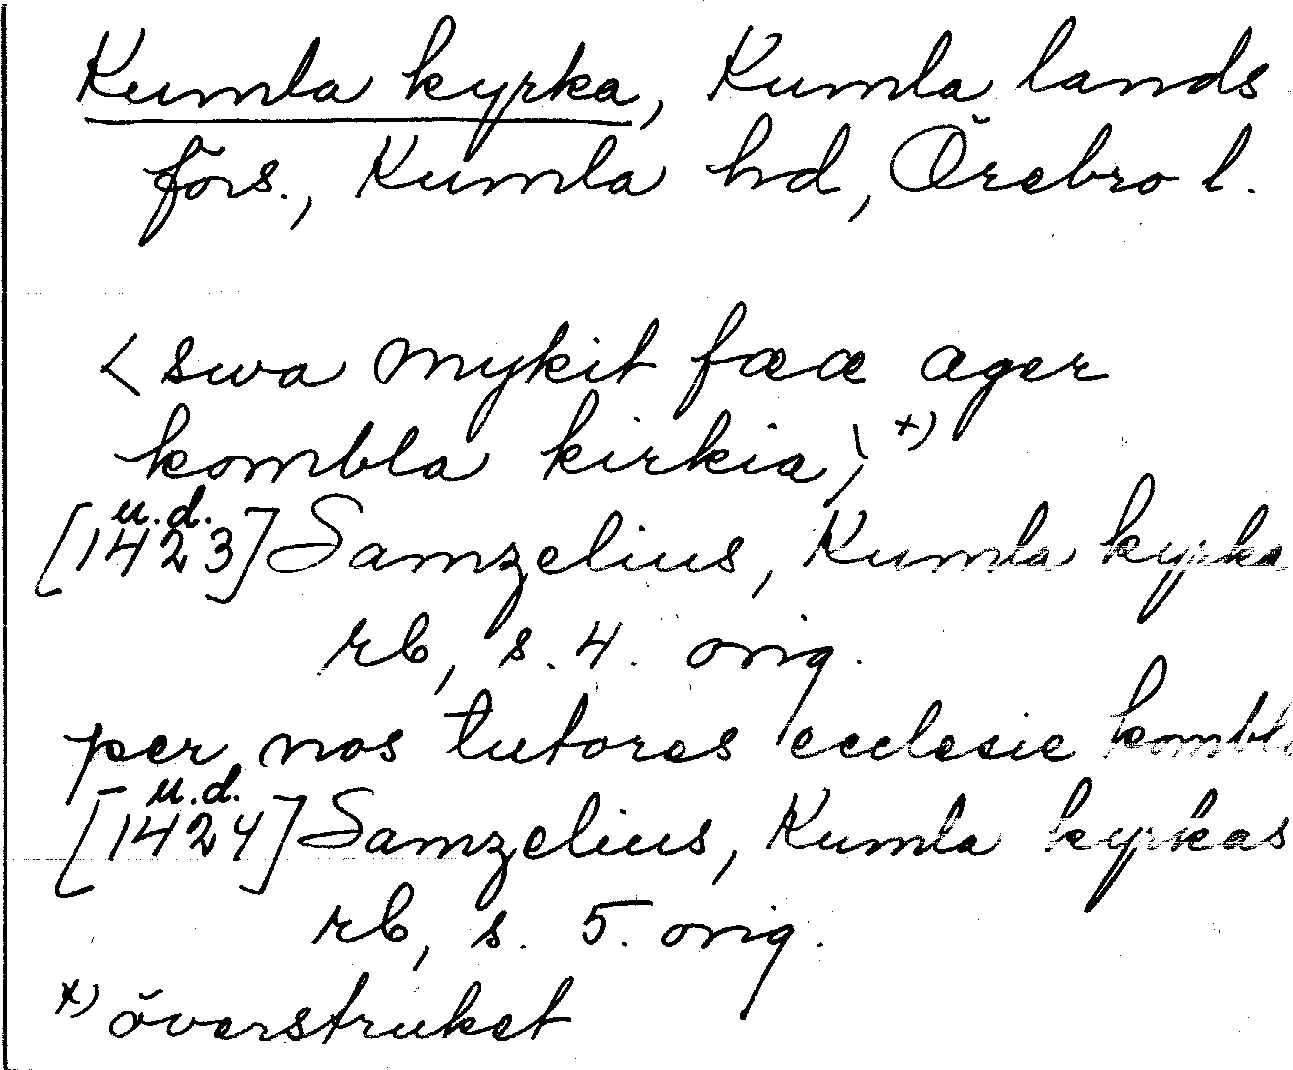 Kumla kyrka, Kumla lands
förs., Kumla hd, Örebro l.
< swa mykit fææ æger
kombla kirkia > x)
u.d.
[1423] Samzelius, Kumla kyrka
rb, s. 4. orig.
per nos tutores ecclesie kombla
u.d.
[1424] Samzelius, Kumla kyrkas
rb, s. 5. orig.
x) överstruket